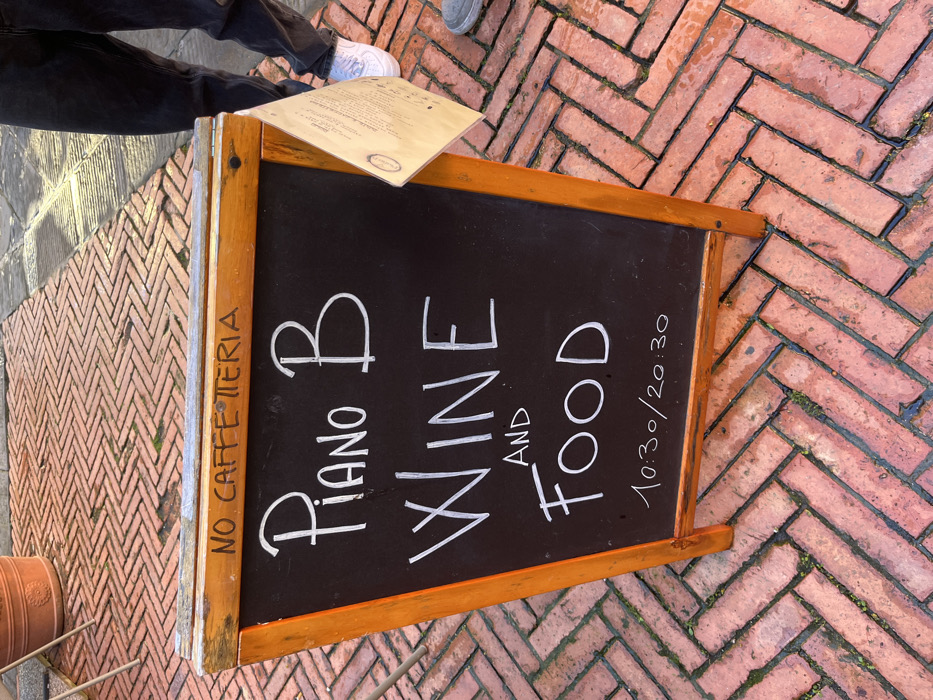 NO CAFFETTERIA
PiANO B
WINE
AND
FOOD
10:30/20:30